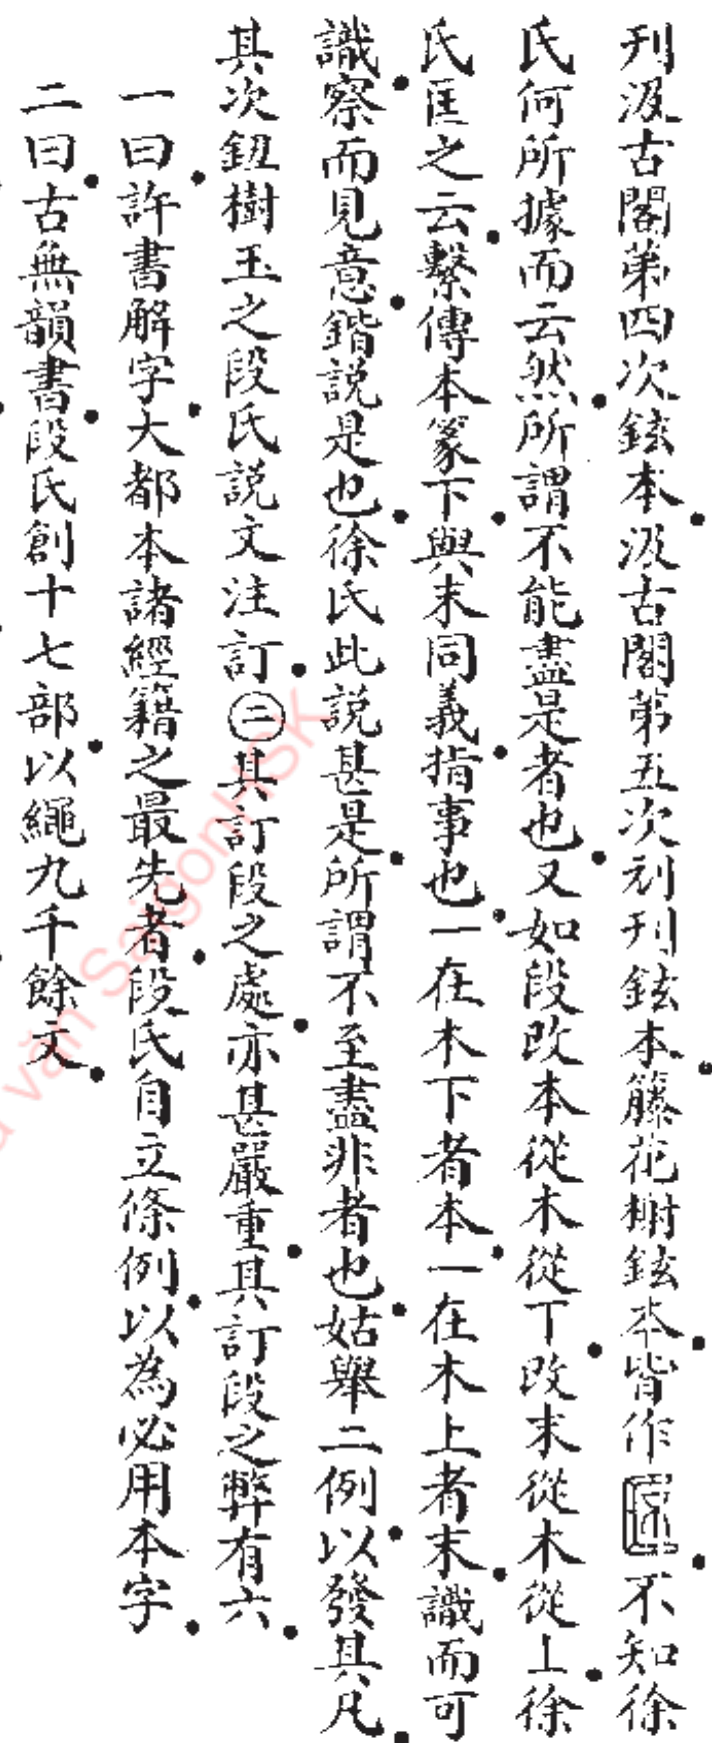 刋汲古閣第四次鉉本．汲古閣第五次刓刋鉉本．籐花榭鉉本．皆作．不知徐
氏何所據而云然．所謂不能盡是者也．又如段改本從木從丅．改末從木從丄．徐
氏匡之云．繫傳本篆下．與末同義．指事也．一在木下者本．一在木上者末．識而可
識．察而見意．鍇説是也．徐氏此説甚是．所謂不至盡非者也．姑舉二例．以發其凡．
其次鈕樹玉之段氏説文注訂．㊁其訂段之處．亦甚嚴重．其訂段之弊有六．
一曰．許書解字．大都本諸經籍之最先者．段氏自立條例．以為必用本字．
二曰．古無韻書．段氏創十七部．以繩九千餘文．
văn SaigonHSK